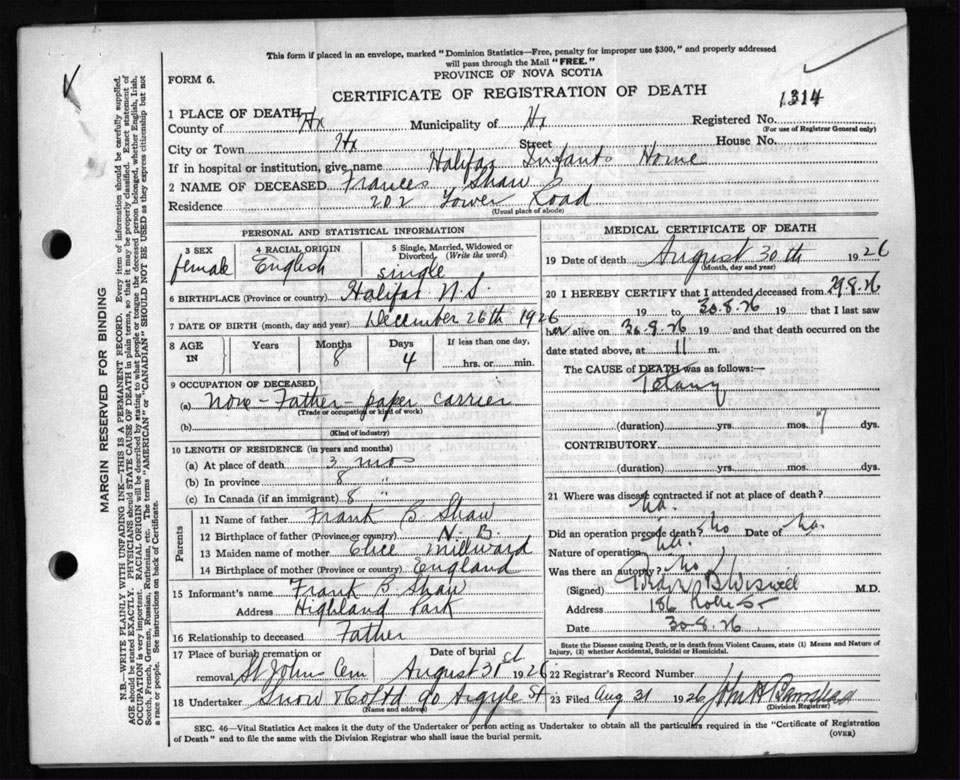 This form if placed in an envelope, marked "Dominion Statistics—Free, penalty for improper use $300," and properly addressed
will pass through the Mail "FREE."
PROVINCE OF NOVA SCOTIA
FORM 6.
CERTIFICATE OF REGISTRATION OF DEATH
1314
1 PLACE OF DEATH
County of Hx Municipality of Hx Registered No.
(For use of Registrar General only)
City or Town Hx Street House No.
If in hospital or institution, give name Halifax Infants Home
2 NAME OF DECEASED Frances Shaw
Residence 202 Tower Road
(Usual place of abode)
PERSONAL AND STATISTICAL INFORMATION
3 SEX 4 RACIAL ORIGIN 5 Single, Married, Widowed or
Divorced. (Write the word)
female English single
6 BIRTHPLACE (Province or country) Halifax N.S.
7 DATE OF BIRTH (month, day and year) December 26th 1926
8 AGE IN Years Months 8 Days 4 If less than one day,
hrs. or min.
9 OCCUPATION OF DECEASED
(a) None - Father - paper carrier
(Trade or occupation or kind of work)
(b)
(Kind of industry)
10 LENGTH OF RESIDENCE (in years and months)
(a) At place of death 3 mos
(b) In province 8 "
(c) In Canada (if an immigrant) 8 "
Parents
11 Name of father Frank B. Shaw
12 Birthplace of father (Province or country) N. B.
13 Maiden name of mother Elice Millward
14 Birthplace of mother (Province or country) England
15 Informant's name Frank B Shaw
Address Highland Park
16 Relationship to deceased Father
17 Place of burial cremation or Date of burial
removal St Johns Cem August 31st 1926
18 Undertaker Snow & Co Ltd 90 Argyle St
(Name and address)
MEDICAL CERTIFICATE OF DEATH
19 Date of death August 30th 1926
(Month, day and year)
20 I HEREBY CERTIFY that I attended deceased from 29.8.26
19 to 30.8.26 19 that I last saw
her alive on 30.8.26 19 and that death occurred on
date stated above, at 11 m.
The CAUSE of DEATH was as follows:—
Tetany
(duration) yrs. mos. dys.
CONTRIBUTORY
(duration) yrs. mos. dys.
21 Where was disease contracted if not at place of death?
na.
Did an operation precede death? no Date of na.
Nature of operation na.
Was there an autopsy? no
(Signed) B Wiswell M.D.
Address 186 St
Date 30.8.26
State the Disease causing Death, or in death from Violent Causes, state (1) Means and Nature of
Injury, (2) whether Accidental, Suicidal or Homicidal.
22 Registrar's Record Number
23 Filed Aug 31 1926 John H
(Division Registrar)
SEC. 46—Vital Statistics Act makes it the duty of the Undertaker or person acting as Undertaker to obtain all the particulars required in the "Certificate of Registration
of Death" and to file the same with the Division Registrar who shall issue the burial permit.
(OVER)
MARGIN RESERVED FOR BINDING
N.B.—WRITE PLAINLY WITH UNFADING INK—THIS IS A PERMANENT RECORD. Every item of information should be carefully supplied.
AGE should be stated EXACTLY. PHYSICIANS should STATE CAUSE OF DEATH in plain terms, so that it may be properly classified. Exact statement of
OCCUPATION is very important. RACIAL ORIGIN will be described by stating to what people or tongue the deceased person belonged, whether English, Irish,
Scotch, French, German, Russian, Ruthenian, etc. The terms "AMERICAN" or "CANADIAN" SHOULD NOT BE USED as they express citizenship but not
a race or people. See instructions on back of Certificate.